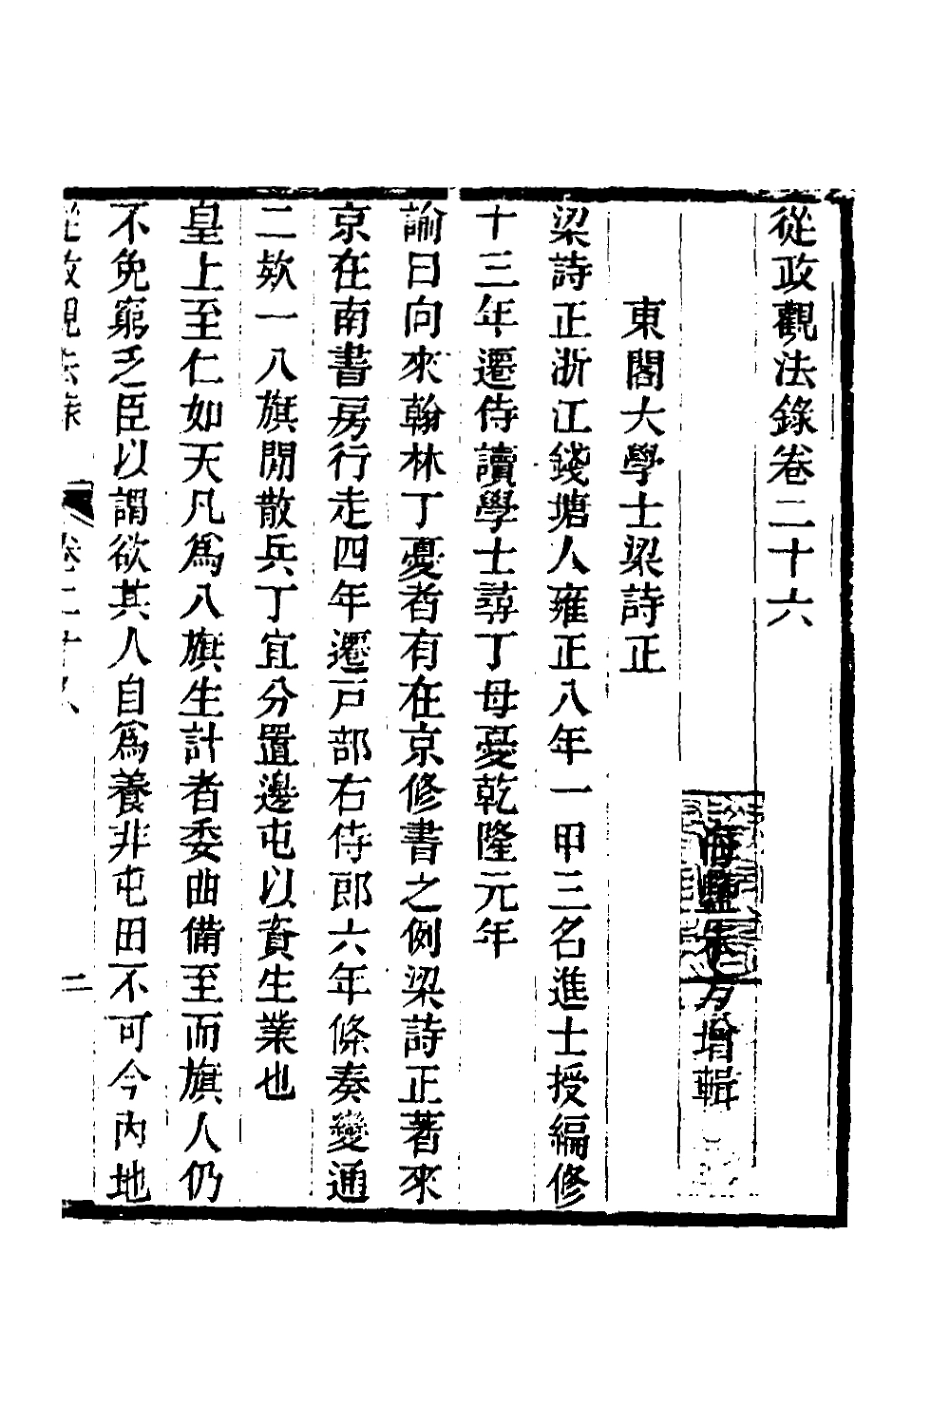 從政觀法錄卷二十六
海鹽朱方增輯
東閣大學士梁詩正
梁詩正浙江錢塘人雍正八年一甲三名進士授編修
十三年遷侍讀學士尋丁母憂乾隆元年
諭曰向來翰林丁憂者有在京修書之例梁詩正著來
京在南書房行走四年遷戸部右侍郎六年條奏變通
二欵一八旗閒散兵丁宜分置邊屯以資生業也
皇上至仁如天凡爲八旗生計者委曲備至而旗人仍
不免窮乏臣以謂欲其人自爲養非屯田不可今内地
從政觀法錄 卷二十六 二